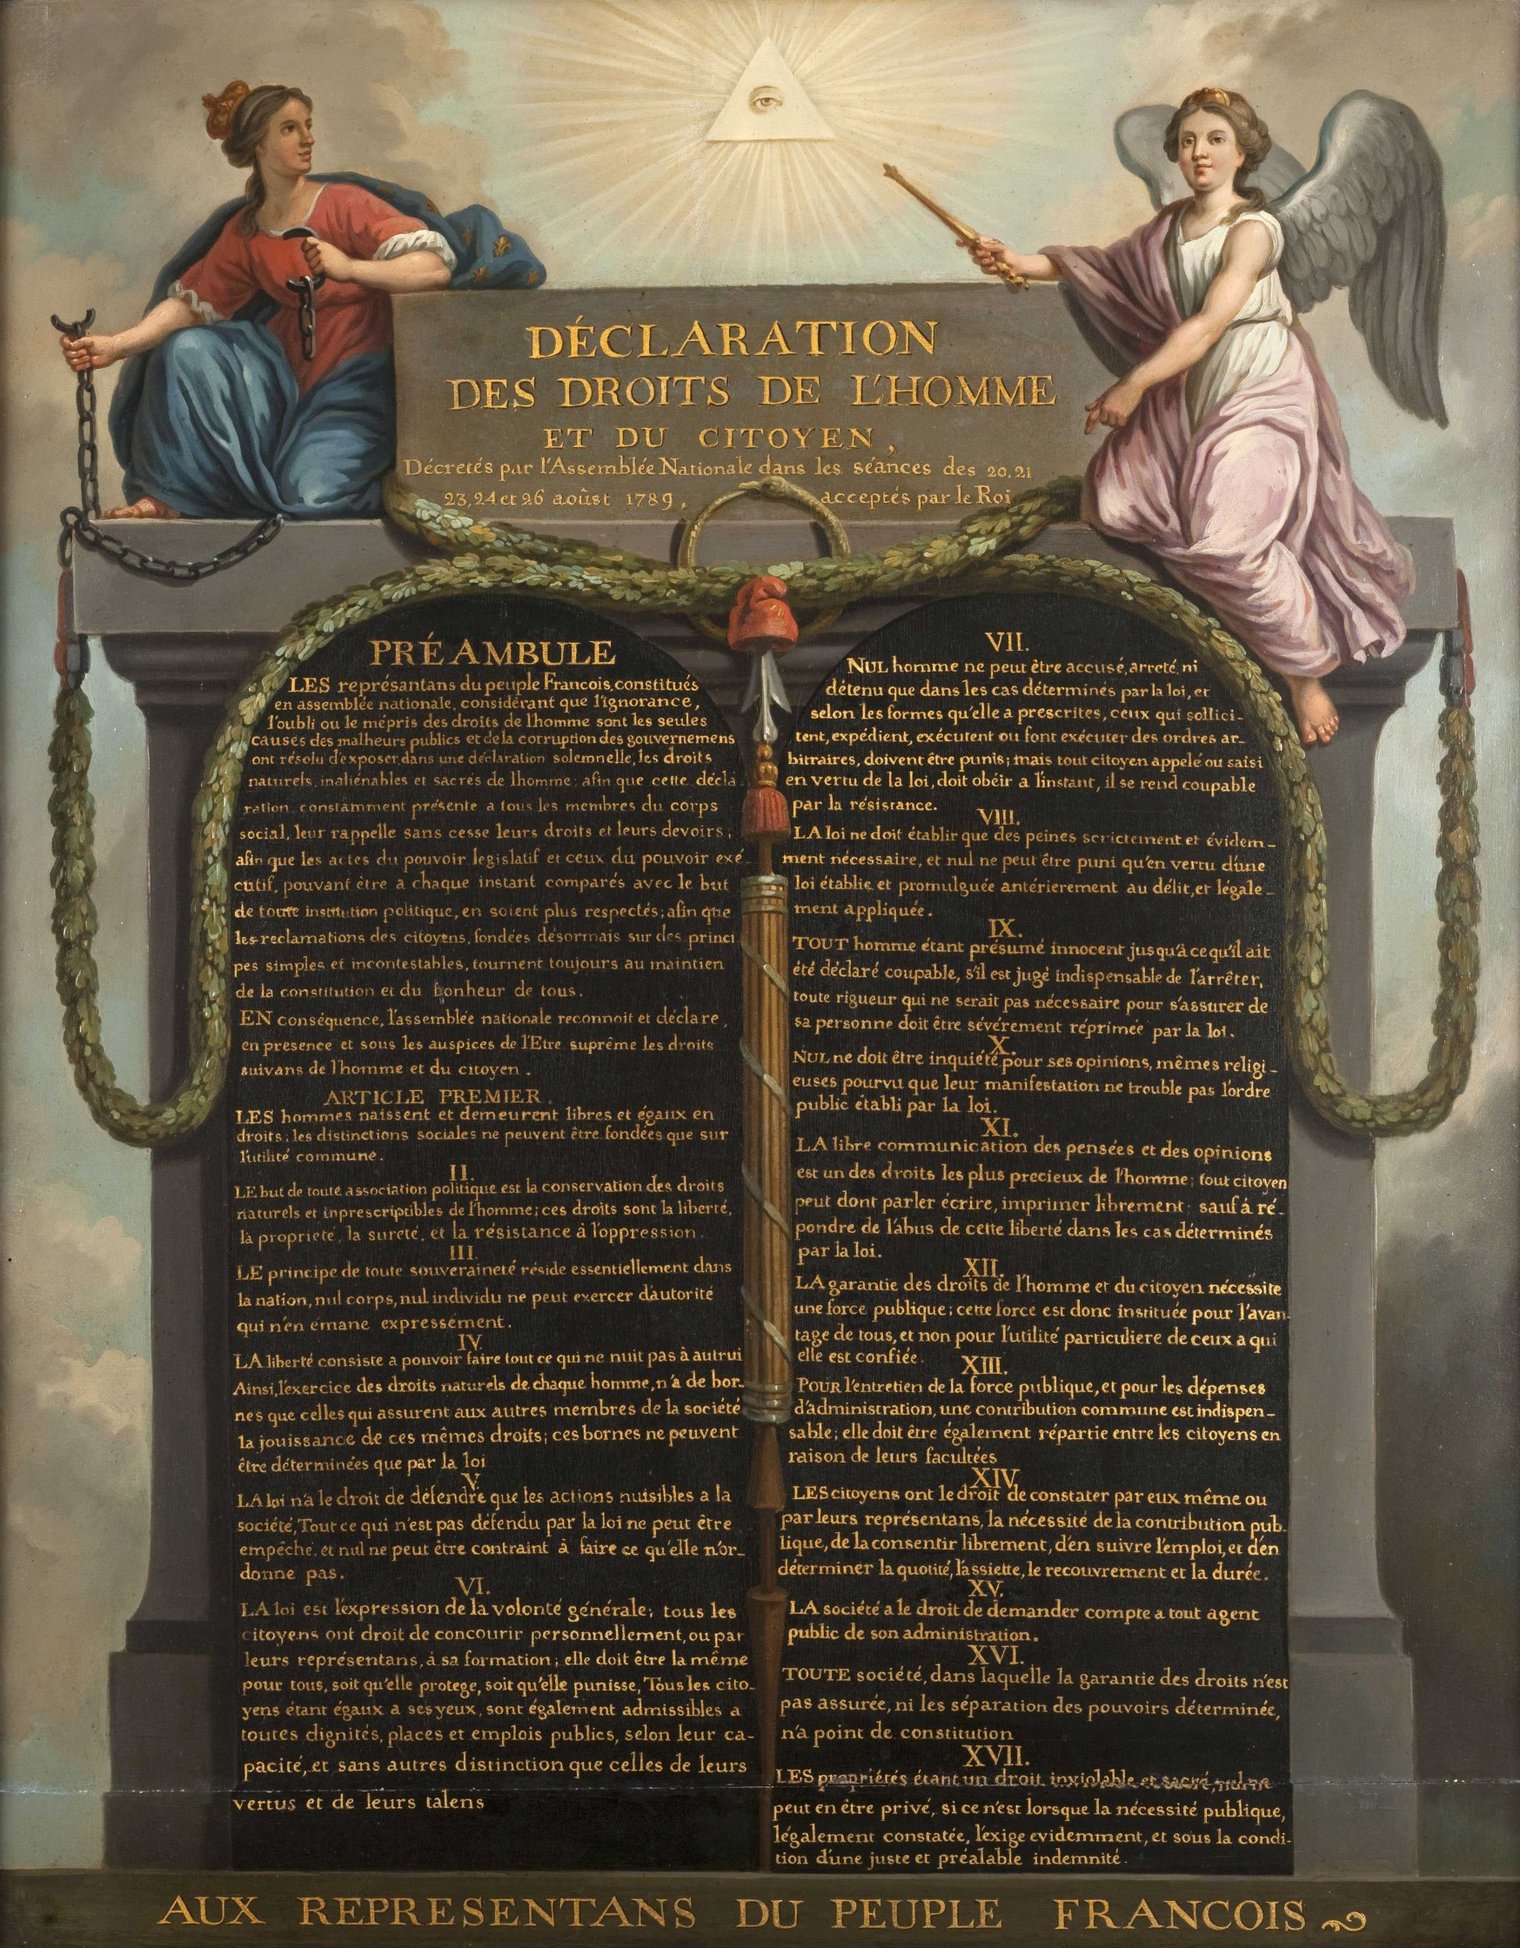 DÉCLARATION
DES DROITS DE L'HOMME
ET DU CITOYEN,
Décretés par l'Assemblée Nationale dans les séances des 20, 21
23, 24 et 26 août 1789, acceptés par le Roi
PRÉAMBULE
LES représantans du peuple Francois, constitués
en assemblée nationale, considérant que l'ignorance,
l'oubli ou le mépris des droits de l'homme sont les seules
causes des malheurs publics et de la corruption des gouvernemens
ont résolu d'exposer dans une déclaration solemnelle, les droits
naturels, inaliénables et sacrés de l'homme; afin que cette décla
ration, constamment présente a tous les membres du corps
social, leur rappelle sans cesse leurs droits et leurs devoirs;
afin que les actes du pouvoir legislatif et ceux du pouvoir exé-
cutif, pouvant être a chaque instant comparés avec le but
de toute institution politique, en soient plus respectés; afin que
les reclamations des citoyens, fondées désormais sur des princi
pes simples et incontestables, tournent toujours au maintien
de la constitution et du bonheur de tous.
EN conséquence, l'assemblée nationale reconnoit et déclare,
en presence et sous les auspices de l'Etre suprême les droits
suivans de l'homme et du citoyen.
ARTICLE PREMIER.
LES hommes naissent et demeurent libres et égaux en
droits; les distinctions sociales ne peuvent être fondées que sur
l'utilité commune.
II.
LE but de toute association politique est la conservation des droits
naturels et inprescriptibles de l'homme; ces droits sont la liberté,
la propriété, la sureté, et la résistance à l'oppression.
III.
LE principe de toute souveraineté réside essentiellement dans
la nation, nul corps, nul individu ne peut exercer d'autorité
qui n'en émane expressement.
IV.
LA liberté consiste a pouvoir faire tout ce qui ne nuit pas à autrui
Ainsi, l'exercice des droits naturels de chaque homme, n'a de bor-
nes que celles qui assurent aux autres membres de la société
la jouissance de ces mêmes droits; ces bornes ne peuvent
être déterminées que par la loi
V.
LA loi n'a le droit de défendre que les actions nuisibles a la
société, Tout ce qui n'est pas défendu par la loi ne peut être
empêché, et nul ne peut être contraint à faire ce qu'elle n'or-
donne pas.
VI.
LA loi est l'expression de la volonté générale; tous les
citoyens ont droit de concourir personnellement, ou par
leurs représentans, à sa formation; elle doit être la même
pour tous, soit qu'elle protege, soit qu'elle punisse, Tous les cito-
yens étant égaux a ses yeux, sont également admissibles a
toutes dignités, places et emplois publics, selon leur ca-
pacité, et sans autres distinction que celles de leurs
vertus et de leurs talens
VII.
NUL homme ne peut être accusé, arreté, ni
détenu que dans les cas déterminés par la loi, et
selon les formes qu'elle a prescrites, ceux qui sollici-
tent, expédient, exécutent ou font exécuter des ordres ar-
bitraires, doivent être punis; mais tout citoyen appelé ou saisi
en vertu de la loi, doit obéir a l'instant, il se rend coupable
par la résistance.
VIII.
LA loi ne doit établir que des peines strictement et évidem-
ment nécessaire, et nul ne peut être puni qu'en vertu d'une
loi établie et promulguée antérierement au délit, et légale-
ment appliquée.
IX.
TOUT homme étant présumé innocent jusqu'à ce qu'il ait
été déclaré coupable, s'il est jugé indispensable de l'arrêter,
toute rigueur qui ne serait pas nécessaire pour s'assurer de
sa personne doit être sévèrement réprimée par la loi.
X.
NUL ne doit être inquiété pour ses opinions, mêmes religi-
euses pourvu que leur manifestation ne trouble pas l'ordre
public établi par la loi.
XI.
LA libre communication des pensées et des opinions
est un des droits les plus precieux de l'homme; tout citoyen
peut dont parler écrire, imprimer librement; sauf à ré-
pondre de l'abus de cette liberté dans les cas déterminés
par la loi.
XII.
LA garantie des droits de l'homme et du citoyen nécessite
une force publique; cette force est donc instituée pour l'avan-
tage de tous, et non pour l'utilité particuliere de ceux a qui
elle est confiée.
XIII.
POUR l'entretien de la force publique, et pour les dépenses
d'administration, une contribution commune est indispen-
sable; elle doit être également répartie entre les citoyens en
raison de leurs facultées
XIV.
LES citoyens ont le droit de constater par eux même ou
par leurs représentans, la nécessité de la contribution pub-
lique, de la consentir librement, d'en suivre l'emploi, et d'en
déterminer la quotité, l'assiette, le recouvrement et la durée.
XV.
LA société a le droit de demander compte a tout agent
public de son administration.
XVI.
TOUTE société, dans laquelle la garantie des droits n'est
pas assurée, ni les séparation des pouvoirs déterminée,
n'a point de constitution
XVII.
LES propriétés étant un droit inviolable et sacré, nul ne
peut en être privé, si ce n'est lorsque la nécessité publique,
légalement constatée, l'exige evidemment, et sous la condi-
tion d'une juste et préalable indemnité.
AUX REPRESENTANS DU PEUPLE FRANCOIS